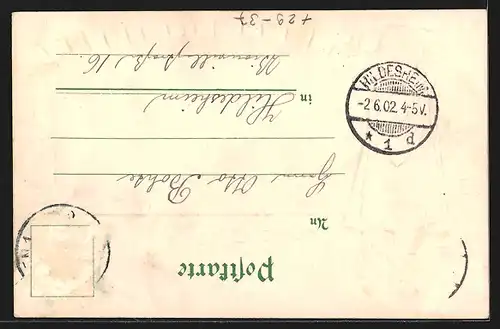 Postkarte
An
Herrn Otto Bohse
in Hildesheim
16.
HILDESHEIM
-2.6.02.4-5V.
* 1 d
+29-37